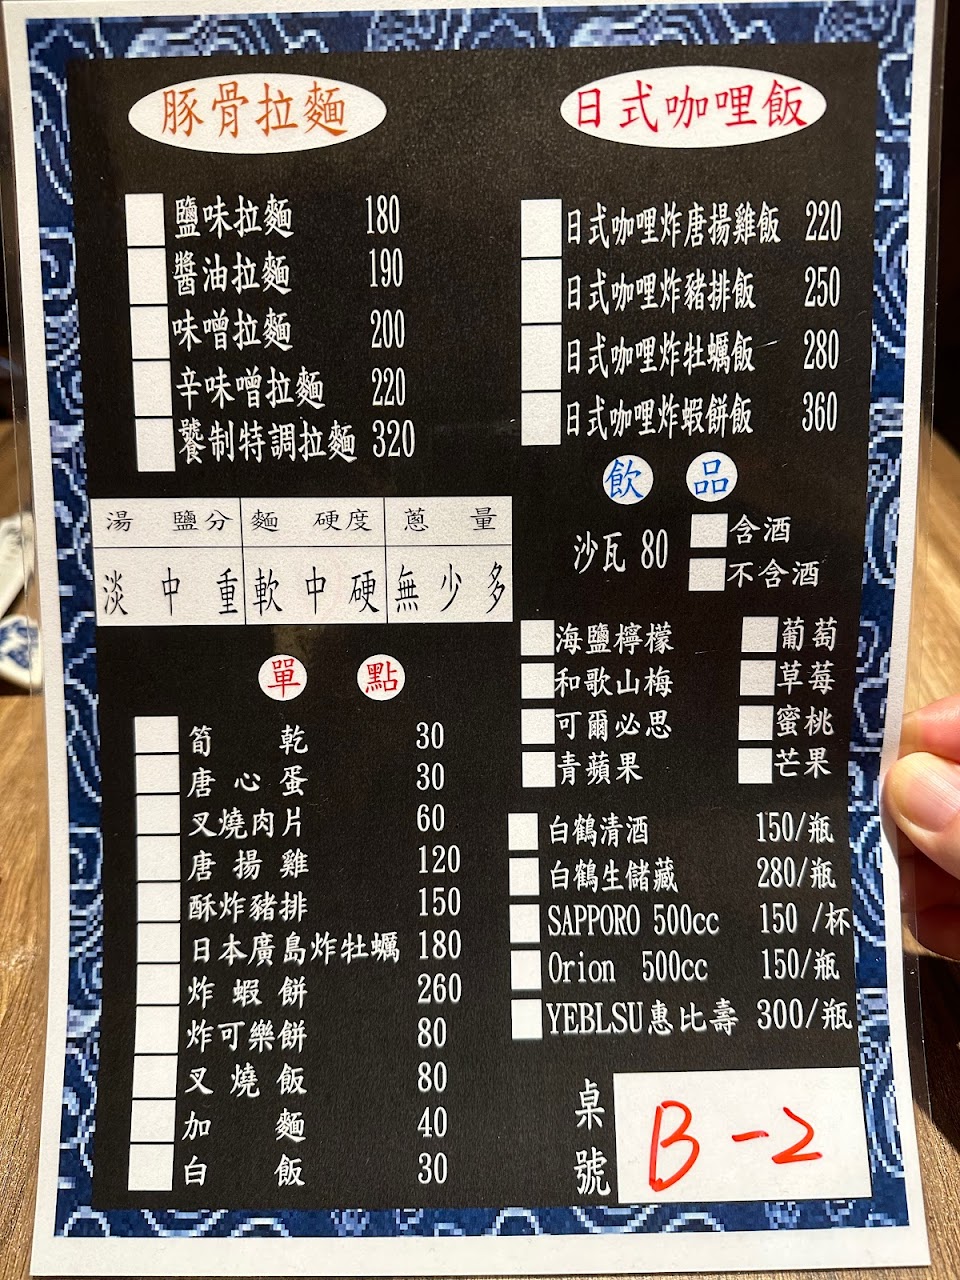 豚骨拉麵
鹽味拉麵 180
醬油拉麵 190
味噌拉麵 200
辛味噌拉麵 220
饕制特調拉麵 320
湯 鹽分 麵 硬度 蔥 量
淡 中 重 軟 中 硬 無 少 多
單 點
筍 乾 30
唐 心 蛋 30
叉燒肉片 60
唐 揚 雞 120
酥炸豬排 150
日本廣島炸牡蠣 180
炸 蝦 餅 260
炸可樂餅 80
叉 燒 飯 80
加 麵 40
白 飯 30
日式咖哩飯
日式咖哩炸唐揚雞飯 220
日式咖哩炸豬排飯 250
日式咖哩炸牡蠣飯 280
日式咖哩炸蝦餅飯 360
飲 品
沙瓦 80
含酒
不含酒
海鹽檸檬 葡萄
和歌山梅 草莓
可爾必思 蜜桃
青蘋果 芒果
白鶴清酒 150/瓶
白鶴生儲藏 280/瓶
SAPPORO 500cc 150 /杯
Orion 500cc 150/瓶
YEBLSU惠比壽 300/瓶
桌號 B-2